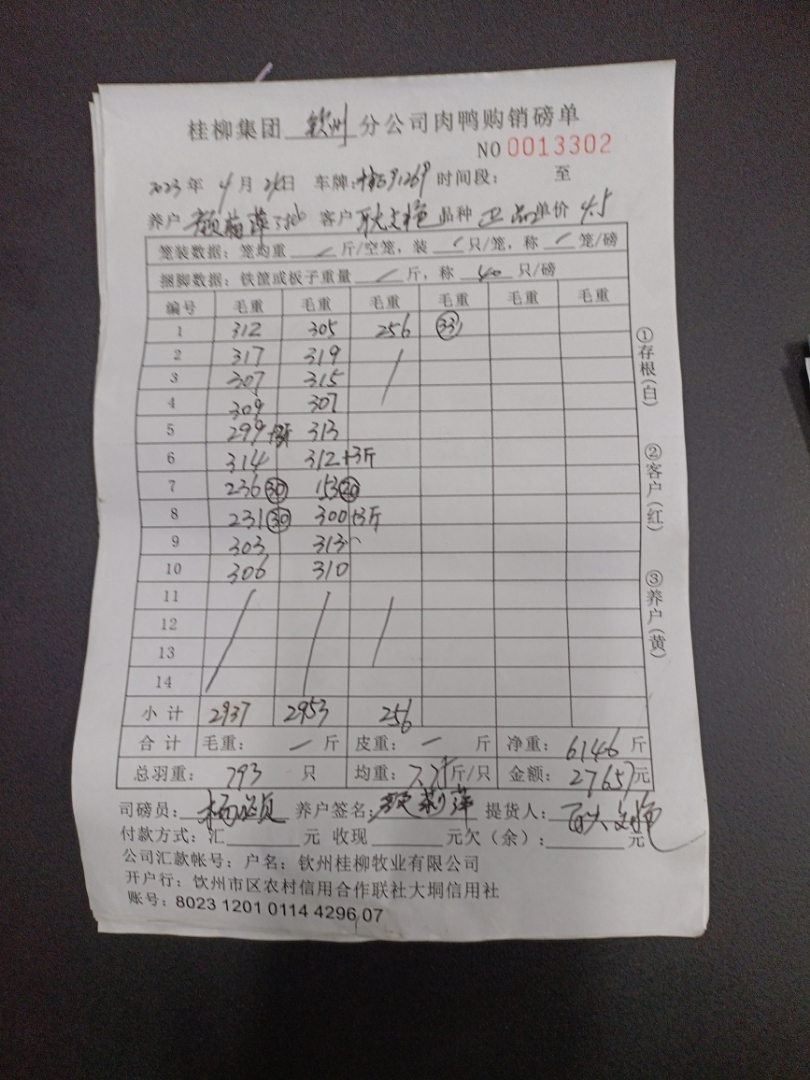 桂柳集团 钦州 分公司肉鸭购销磅单
NO 0013302
2023 年 4 月 24日 车牌: 时间段: 至
养户 颜 萍 客户 耿 艳 品种 正品 单价 4.5
笼装数据: 笼均重 / 斤/空笼, 装 / 只/笼, 称 / 笼/磅
捆脚数据: 铁筐或板子重量 / 斤, 称 40 只/磅
编号 毛重 毛重 毛重 毛重 毛重 毛重
1 312 305 256 33
2 317 319
3 307 315
4 309 307
5 299 313
6 314 312+3斤
7 236 30 153 20
8 231 30 300+3斤
9 303 313
10 306 310
11
12
13
14
小计 2937 2953 256
合计 毛重: — 斤 皮重: — 斤 净重: 6146 斤
总羽重: 793 只 均重: 斤/只 金额: 27657元
司磅员: 杨 养户签名: 萍 提货人: 艳
付款方式: 汇 元 收现 元欠(余): 元
公司汇款帐号: 户名: 钦州桂柳牧业有限公司
开户行: 钦州市区农村信用合作联社大垌信用社
账号: 8023 1201 0114 4296 07
①存根(白)
②客户(红)
③养户(黄)